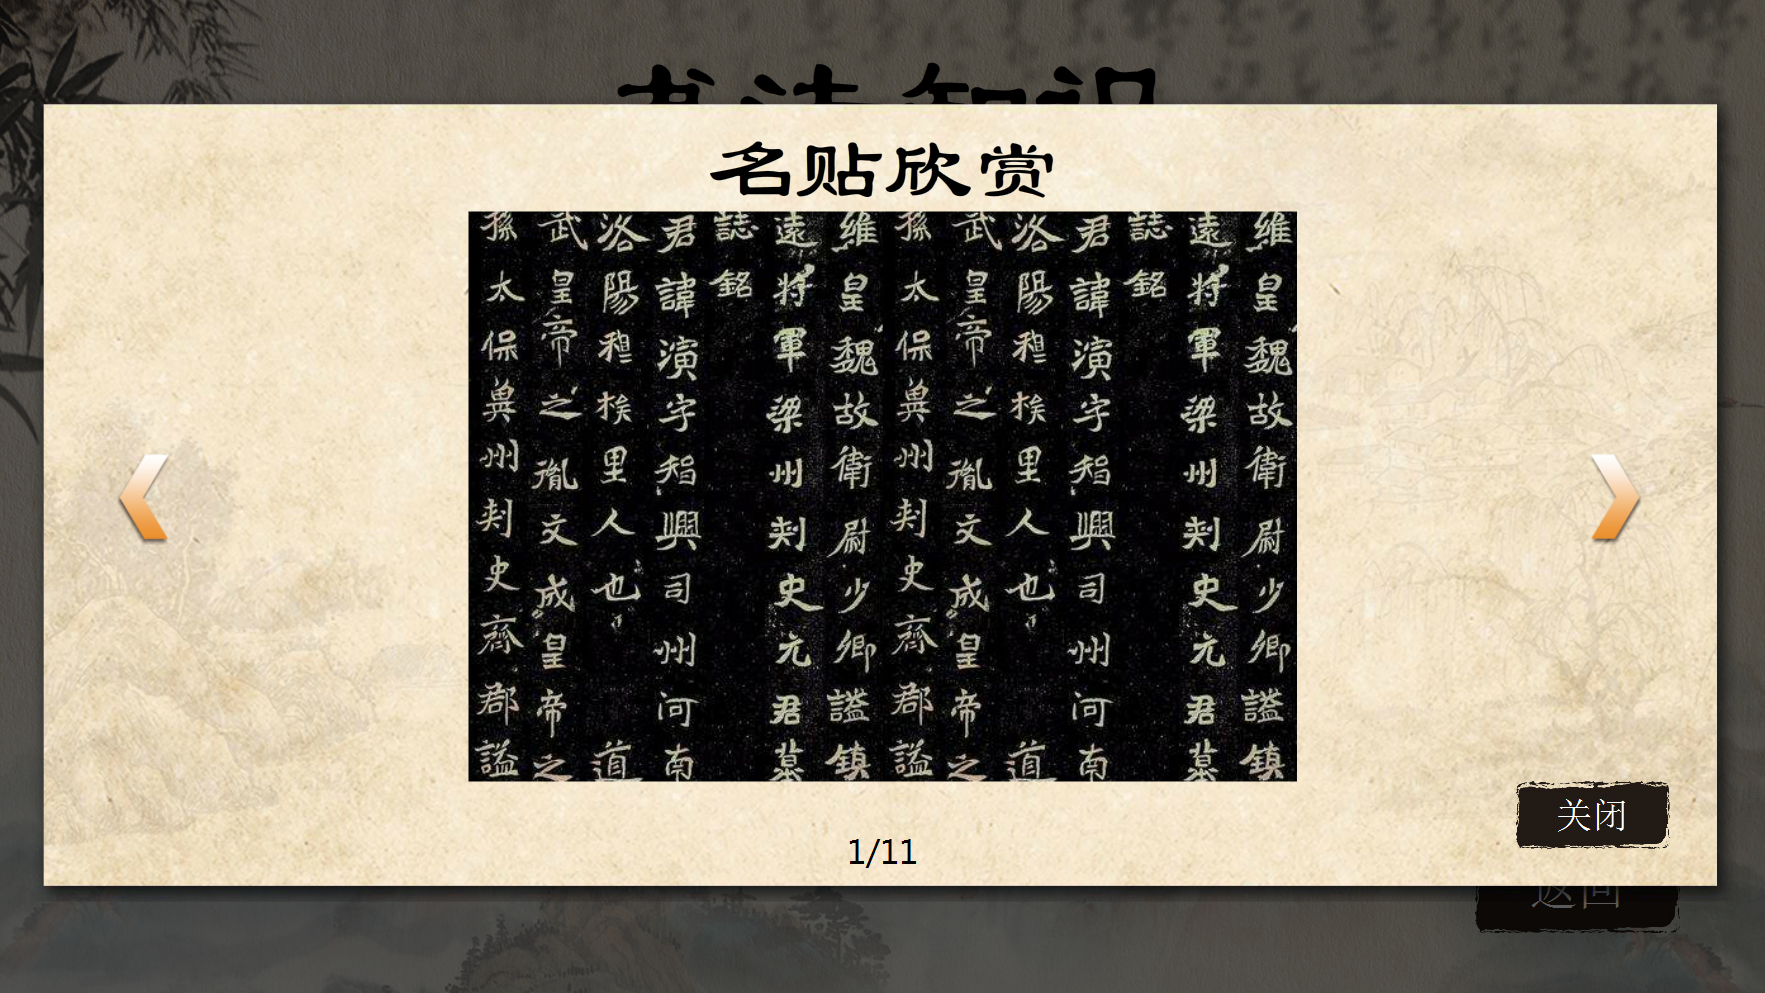 书法知识
名贴欣赏
維皇魏故衛尉少卿謚鎮
遠將軍梁州刺史元君墓
誌銘
君諱演字智興司州河南
洛陽穆族里人也 道
武皇帝之胤文成皇帝之
孫太保冀州刺史齊郡謚
維皇魏故衛尉少卿謚鎮
遠將軍梁州刺史元君墓
誌銘
君諱演字智興司州河南
洛陽穆族里人也 道
武皇帝之胤文成皇帝之
孫太保冀州刺史齊郡謚
1/11
关闭
返回